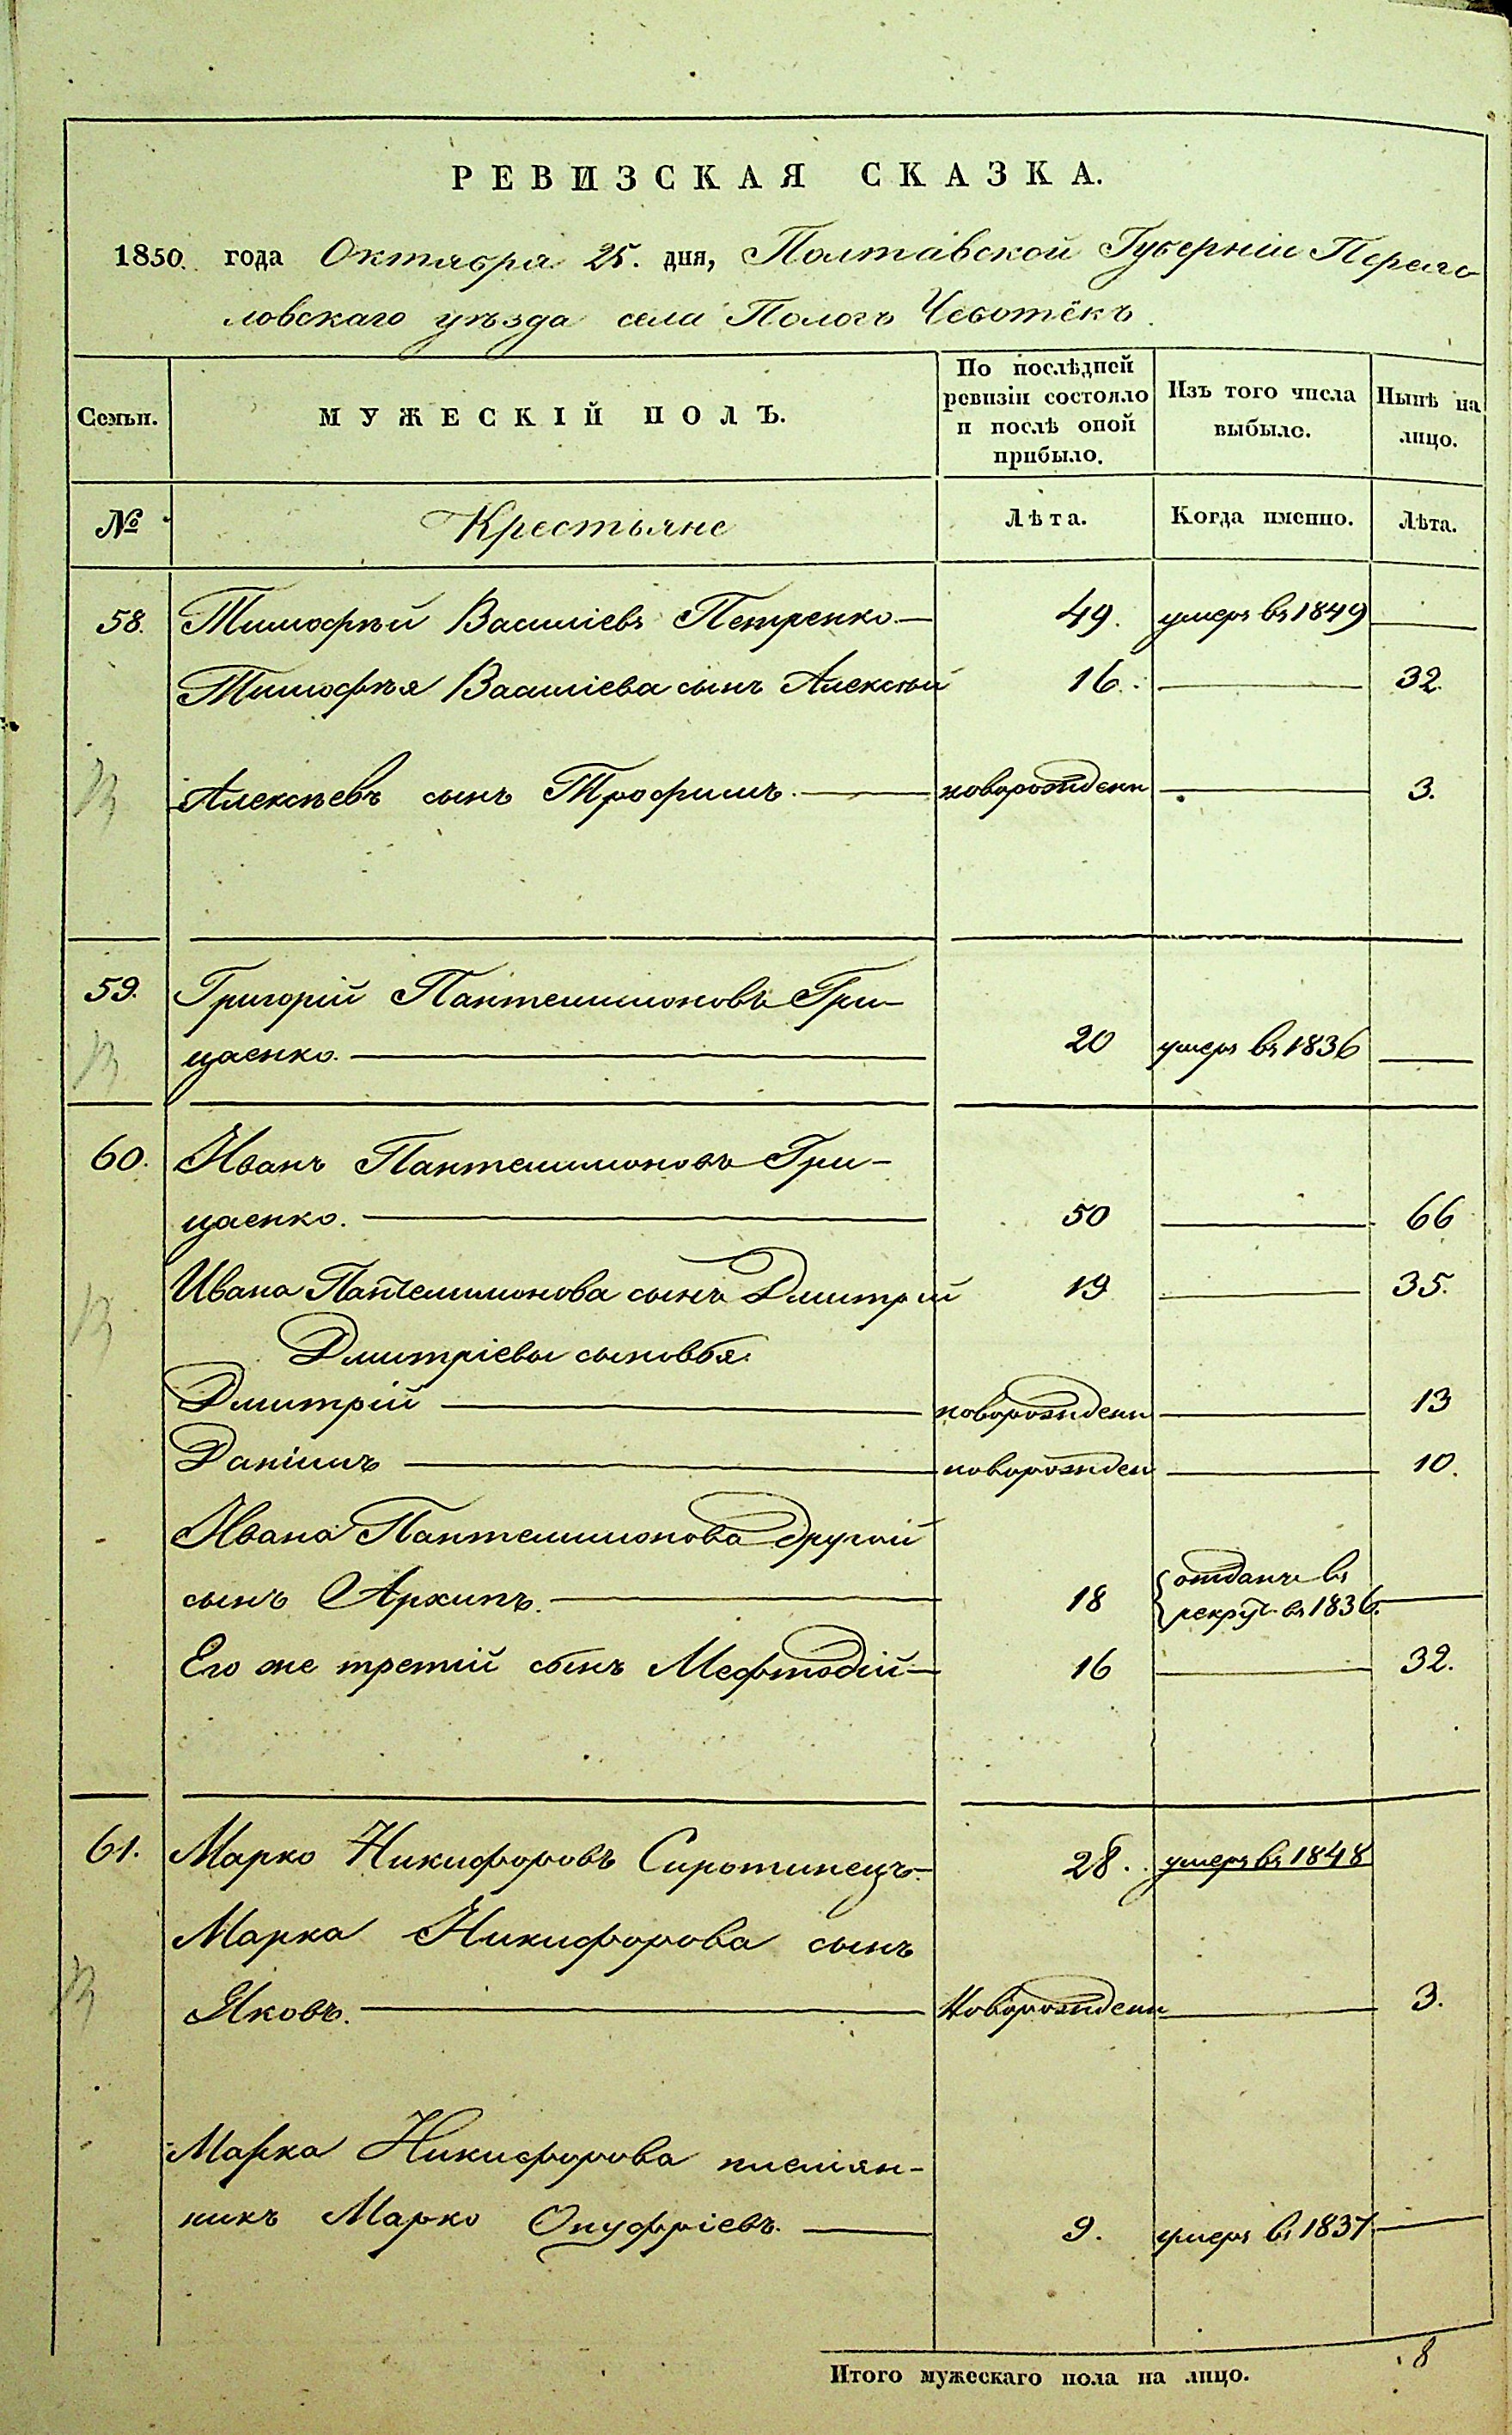 РЕВИЗСКАЯ СКАЗКА.
1850. года Октября 25. дня, Полтавской Губерніи Перея
ловскаго уѣзда села Пологъ Чеботёкъ.
Семьи. МУЖЕСКІЙ ПОЛЪ. По послѣдней ревизіи состояло и послѣ оной прибыло. Изъ того числа выбыло. Нынѣ на лицо.
№ Крестьяне Лѣта. Когда именно. Лѣта.
58. Тимофѣй Василіевъ Петренко — 49. умеръ въ 1849 —
Тимофѣя Василіева сынъ Алексѣй 16. — 32.
Алексѣевъ сынъ Трофимъ. — новорожденн — 3.
59. Григорій Пантелимоновъ Гри-
цаенко. — 20 умеръ въ 1836 —
60. Иванъ Пантелимоновъ Гри-
цаенко. — 50 — 66
Ивана Пантелимонова сынъ Дмитрій 19 — 35.
Дмитріевы сыновья.
Дмитрій — новорожденн — 13
Даніилъ — новорожден — 10.
Ивана Пантелимонова другой
сынъ Архипъ. — 18 отданъ въ рекрут въ 1836. —
Его же третій сынъ Мефтодій — 16 — 32.
61. Марко Никифоровъ Сиротинецъ — 28. умеръ въ 1848
Марка Никифорова сынъ
Яковъ. — Новорожденн — 3.
Марка Никифорова племян-
никъ Марко Онуфріевъ. — 9. умеръ въ 1837 —
Итого мужескаго пола на лицо. 8